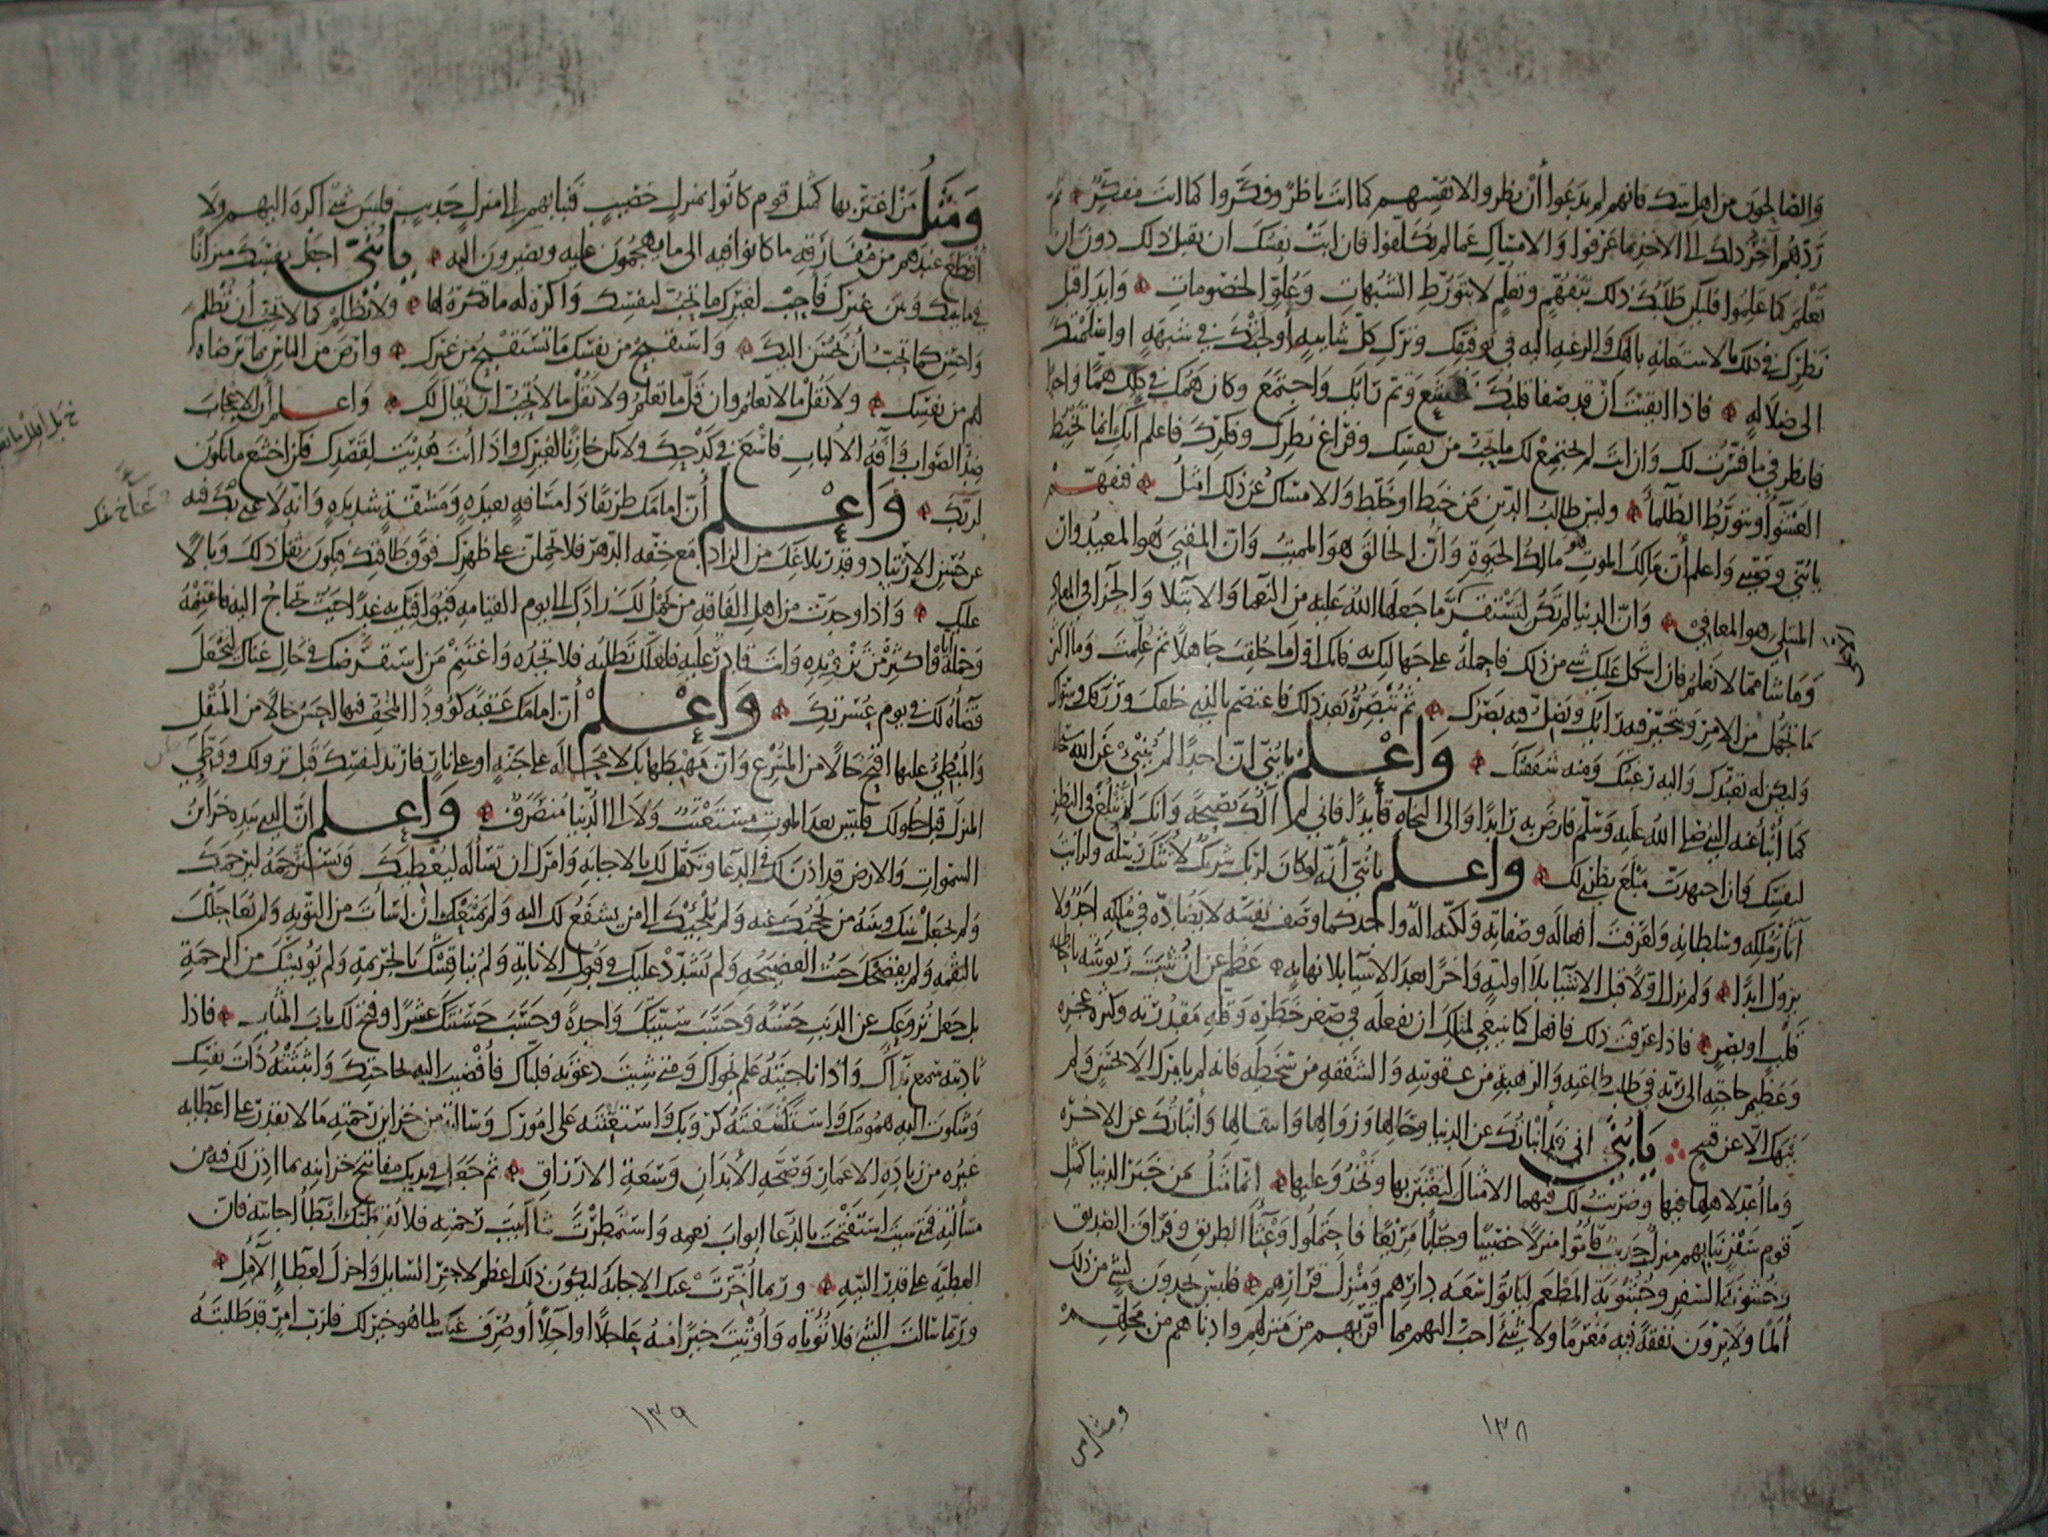 والصالحون من اهل بيتك فانهم لم يدعوا أن نظروا لانفسهم كما انت ناظر وفكروا كما انت مفكر ثم
ردهم آخر ذلك الى الاخذ بما عرفوا والامساك عما لم يكلفوا فان ابت نفسك ان تقبل ذلك دون ان
تعلم كما علموا فليكن طلبك ذلك بتفهم وتعلم لا بتورط الشبهات وعلو الخصومات وابدا قبل
نظرك في ذلك بالاستعانة بالهك والرغبة اليه في توفيقك وترك كل شايبة أولجتك في شبهة او اسلمتك
الى ضلالة فاذا ايقنت ان قد صفا قلبك فخشع وتم رايك واجتمع وكان همك في ذلك هما واحدا
فانظر فيما فسرت لك وان انت لم يجتمع لك ما تحب من نفسك وفراغ نظرك وفكرك فاعلم انك انما تخبط
العشوآ وتتورط الظلمآ وليس طالب الدين من خبط او خلط والامساك عن ذلك امثل فتفهم
يا بني وصيتي واعلم أن مالك الموت هو مالك الحيوة وان الخالق هو المميت وان المفني هو المعيد وان
المبتلي هو المعافي وان الدنيا لم تكن لتستقر الا على ما جعلها الله عليه من النعما والابتلا والجزا في المعاد
وما شا مما لا نعلم فان اشكل عليك شي من ذلك فاحمله على جهالتك به فانك اول ما خلقت جاهلا ثم علمت وما اكثر
ما تجهل من الامر ويتحير فيه رايك ويضل فيه بصرك ثم تبصره بعد ذلك فاعتصم بالذي خلقك ورزقك وسواك
وليكن له تعبدك واليه رغبتك ومنه شفقتك واعلم يا بني ان احدا لم ينبئ عن الله سبحانه
كما أنبأ عنه النبي صلى الله عليه وسلم فارض به رايدا والى النجاة قايدا فاني لم آلك نصيحة وانك لن تبلغ في النظر
لنفسك وان اجتهدت مبلغ نظري لك واعلم يا بني أنه لو كان لربك شريك لاتتك رسله ولرايت
آثار ملكه وسلطانه ولعرفت أفعاله وصفاته ولكنه اله واحد كما وصف نفسه لا يضاده في ملكه احد ولا
يزول ابدا ولم يزل اولا قبل الاشيا بلا اولية واخرا بعد الاشيا بلا نهاية عظم عن ان تثبت ربوبيته باحاطة
قلب او بصر فاذا عرفت ذلك فافعل كما ينبغي لمثلك ان يفعله في صغر خطره وقلة مقدرته وكثرة عجزه
وعظيم حاجته الى ربه في طلب طاعته والرهبة من عقوبته والشفقة من سخطه فانه لم يامرك الا بحسن ولم
ينهك الا عن قبيح يا بني اني قد أنبأتك عن الدنيا وحالها وزوالها وانتقالها وأنبأتك عن الاخرة
وما أعد لاهلها فيها وضربت لك فيهما الامثال لتعتبر بها وتحذو عليها انما مثل من خبر الدنيا كمثل
قوم سفر نبا بهم منزل جديب فأموا منزلا خصيبا وجنابا مريعا فاحتملوا وعثآ الطريق وفراق الصديق
وخشونة السفر وجشوبة المطعم ليأتوا سعة دارهم ومنزل قرارهم فليس يجدون لشي من ذلك
ألما ولا يرون نفقة فيه مغرما ولا شئ احب اليهم مما قربهم من منزلهم وادناهم من محلهم
١٣٨
ومثل من اغتر بها كمثل قوم كانوا بمنزل خصيب فنبا بهم الى منزل جديب فليس شئ اكره اليهم ولا
افظع عندهم من مفارقة ما كانوا فيه الى ما يهجمون عليه ويصيرون اليه يا بني اجعل نفسك ميزانا
فيما بينك وبين غيرك فأحبب لغيرك ما تحب لنفسك واكره له ما تكره لها ولا تظلم كما لا تحب أن تظلم
واحسن كما تحب أن يحسن اليك واستقبح من نفسك ما تستقبح من غيرك وارض من الناس بما ترضاه
لهم من نفسك ولا تقل ما لا تعلم وان قل ما تعلم ولا تقل ما لا تحب ان يقال لك واعلم أن الاعجاب
ضد الصواب وآفة الألباب فاسع في كدحك ولا تكن خازنا لغيرك واذا أنت هديت لقصدك فكن اخشع ما تكون
لربك واعلم أن امامك طريقا ذا مسافة بعيدة ومشقة شديدة وانه لا غنى بك فيه
عن حسن الارتياد وقدر بلاغك من الزاد مع خفة الظهر فلا تحملن على ظهرك فوق طاقتك فيكون ثقل ذلك وبالا
عليك واذا وجدت من اهل الفاقة من يحمل لك زادك الى يوم القيامة فيوافيك به غدا حيث تحتاج اليه فاغتنمه
وحمله اياه واكثر من تزويده وانت قادر عليه فلعلك تطلبه فلا تجده واغتنم من استقرضك في حال غناك ليجعل
قضاه لك في يوم عسرتك واعلم أن امامك عقبة كؤودا المخف فيها احسن حالا من المثقل
والمبطئ عليها اقبح حالا من المسرع وان مهبطها بك لا محالة على جنة او على نار فارتد لنفسك قبل نزولك ووطئ
المنزل قبل حلولك فليس بعد الموت مستعتب ولا الى الدنيا منصرف واعلم ان الذي بيده خزائن
السموات والارض قد اذن لك في الدعا وتكفل لك بالاجابة وامرك ان تسأله ليعطيك وتسترحمه ليرحمك
ولم يجعل بينك وبينه من يحجبك عنه ولم يلجئك الى من يشفع لك اليه ولم يمنعك ان اسأت من التوبة ولم يعاجلك
بالنقمة ولم يفضحك حيث الفضيحة ولم يشدد عليك في قبول الانابة ولم يناقشك بالجريمة ولم يؤيسك من الرحمة
بل جعل نزوعك عن الذنب حسنة وحسب سيئتك واحدة وحسب حسنتك عشرا وفتح لك باب المتاب فاذا
ناديته سمع نداك واذا ناجيته علم نجواك ومتى شيت دعوته فلباك فأفضيت اليه بحاجتك وابثثته ذات نفسك
وشكوت اليه همومك واستكشفته كروبك واستعنته على امورك وسالته من خزاين رحمته ما لا يقدر على اعطايه
غيره من زيادة الاعمار وصحة الأبدان وسعة الارزاق ثم جعل في يديك مفاتيح خزاينه بما اذن لك فيه من
مسألته فمتى شيت استفتحت بالدعا ابواب نعمه واستمطرت شآبيب رحمته فلا يقنطنك ابطآ اجابته فان
العطية على قدر النية وربما أخرت عنك الاجابة ليكون ذلك اعظم لاجر السايل واجزل لعطا الآمل
وربما سالت الشي فلا تؤتاه وأوتيت خيرا منه عاجلا او آجلا أو صرف عنك لما هو خير لك فلرب امر قد طلبته
١٣٩